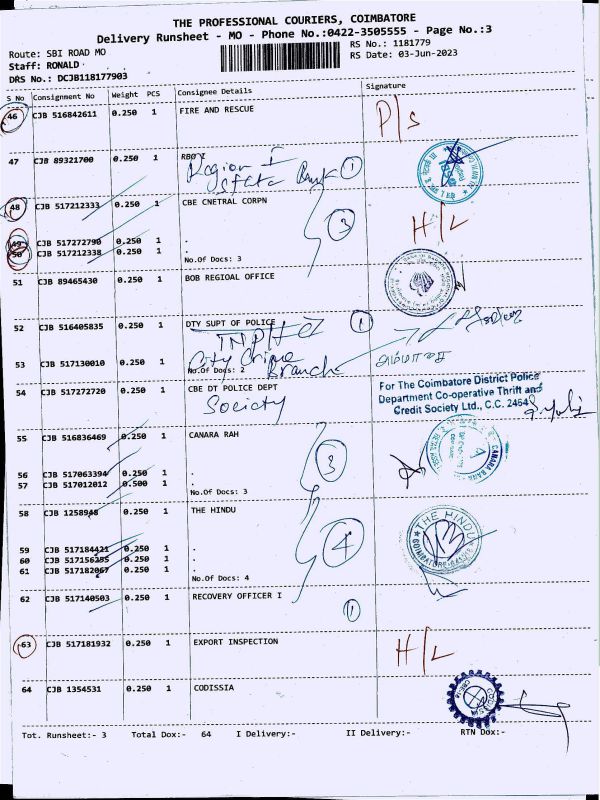 THE PROFESSIONAL COURIERS, COIMBATORE
Delivery Runsheet - MO - Phone No.:0422-3505555 - Page No.:3
Route: SBI ROAD MO
RS No.: 1181779
Staff: RONALD
RS Date: 03-Jun-2023
DRS No.: DCJB118177903
S No Consignment No Weight PCS Consignee Details Signature
46 CJB 516842611 0.250 1 FIRE AND RESCUE P/S
47 CJB 89321700 0.250 1 RBO I
Region I
State Bank 1
48 CJB 517212333 0.250 1 CBE CNETRAL CORPN
3 H/L
49 CJB 517272790 0.250 1 .
50 CJB 517212338 0.250 1 .
No.Of Docs: 3
51 CJB 89465430 0.250 1 BOB REGIOAL OFFICE
52 CJB 516405835 0.250 1 DTY SUPT OF POLICE 1
53 CJB 517130010 0.250 1 City Crime
No.Of Docs: 2
Branch
54 CJB 517272720 0.250 1 CBE DT POLICE DEPT
Society
For The Coimbatore District Police
Department Co-operative Thrift and
Credit Society Ltd., C.C. 2454
55 CJB 516836469 0.250 1 CANARA RAH
3
CANARA BANK
56 CJB 517063394 0.250 1 .
57 CJB 517012012 0.500 1 .
No.Of Docs: 3
58 CJB 1258948 0.250 1 THE HINDU
4
THE HINDU
COIMBATORE
59 CJB 517184421 0.250 1 .
60 CJB 517156255 0.250 1 .
61 CJB 517182067 0.250 1 .
No.Of Docs: 4
62 CJB 517140503 0.250 1 RECOVERY OFFICER I
1
63 CJB 517181932 0.250 1 EXPORT INSPECTION H/L
64 CJB 1354531 0.250 1 CODISSIA
CODISSIA
Tot. Runsheet:- 3 Total Dox:- 64 I Delivery:- II Delivery:- RTN Dox:-